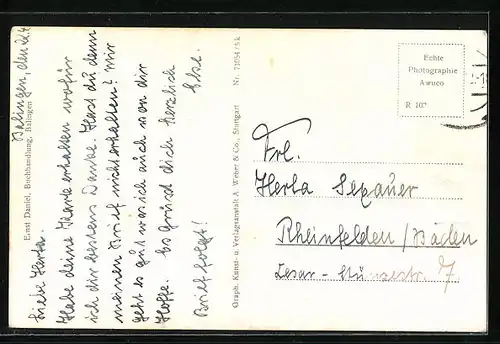 Balingen, den 22.4
Liebe Herta.
Habe deine Karte erhalten wofür
ich dir bestens Danke. Hast du denn
meinen Brief nicht erhalten? Mir
geht es gut was ich auch von dir
Hoffe. Es grüsst dich herzlich
Brief folgt! Else.
Ernst Daniel, Buchhandlung, Balingen
Graph. Kunst- u. Verlagsanstalt A. Weber & Co., Stuttgart Nr.
Echte
Photographie
Aweco
R 107
Frl.
Herta
Rheinfelden / Baden
7